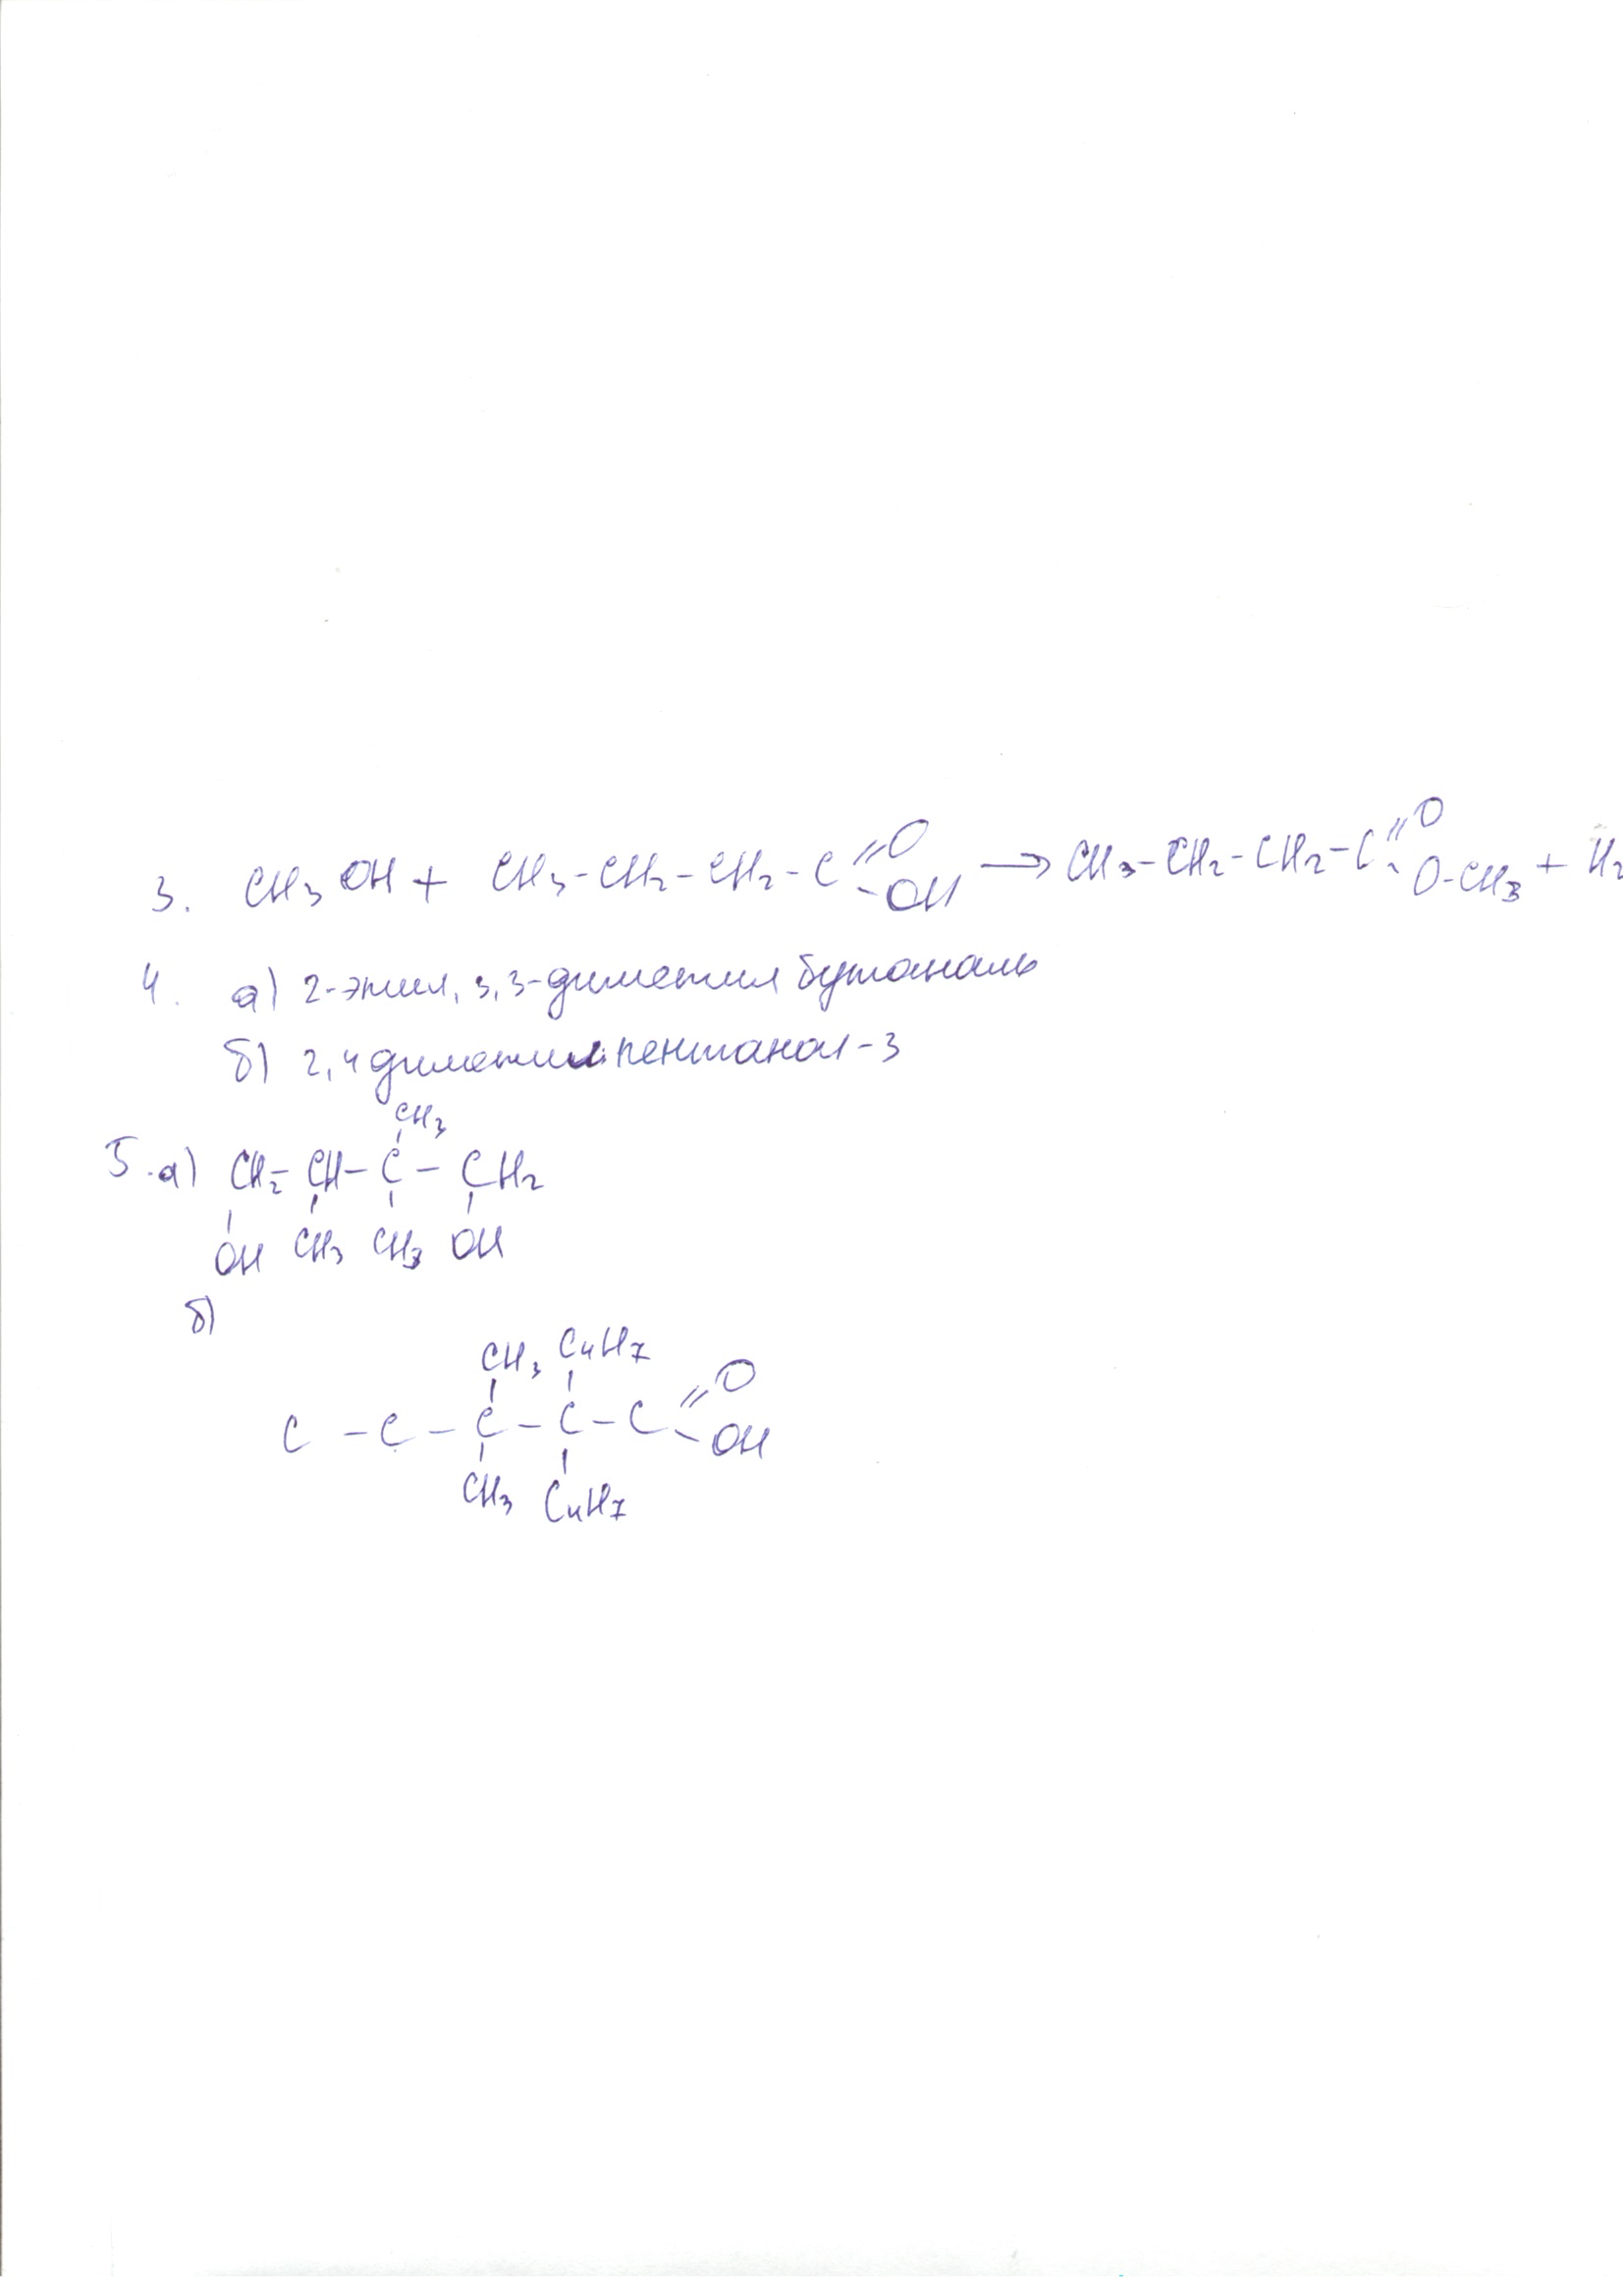 3. CH3OH + CH3-CH2-CH2-C=O-OH → CH3-CH2-CH2-C=O-O-CH3 + H2
4. а) 2-этил, 3,3-диметил бутаналь
б) 2,4 диметил пентанол-3
CH3
5.а) CH2-CH-C-CH2
OH CH3 CH3 OH
б)
CH3 C4H7
C-C-C-C-C=O-OH
CH3 C4H7